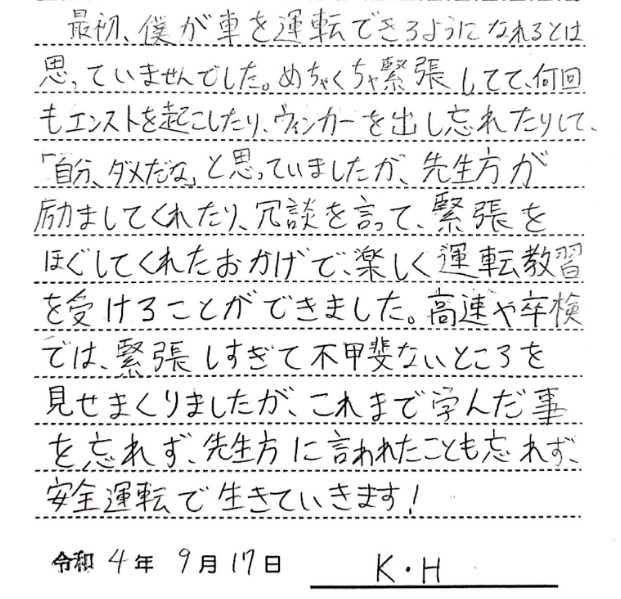 最初、僕が車を運転できるようになれるとは
思っていませんでした。めちゃくちゃ緊張してて、何回
もエンストを起こしたり、ウィンカーを出し忘れたりして、
「自分、ダメだな」と思っていましたが、先生方が
励ましてくれたり、冗談を言って、緊張を
ほぐしてくれたおかげで、楽しく運転教習
を受けることができました。高速や卒検
では、緊張しすぎて不甲斐ないところを
見せまくりましたが、これまで学んだ事
を忘れず、先生方に言われたことも忘れず、
安全運転で生きていきます!
令和4年9月17日 K・H